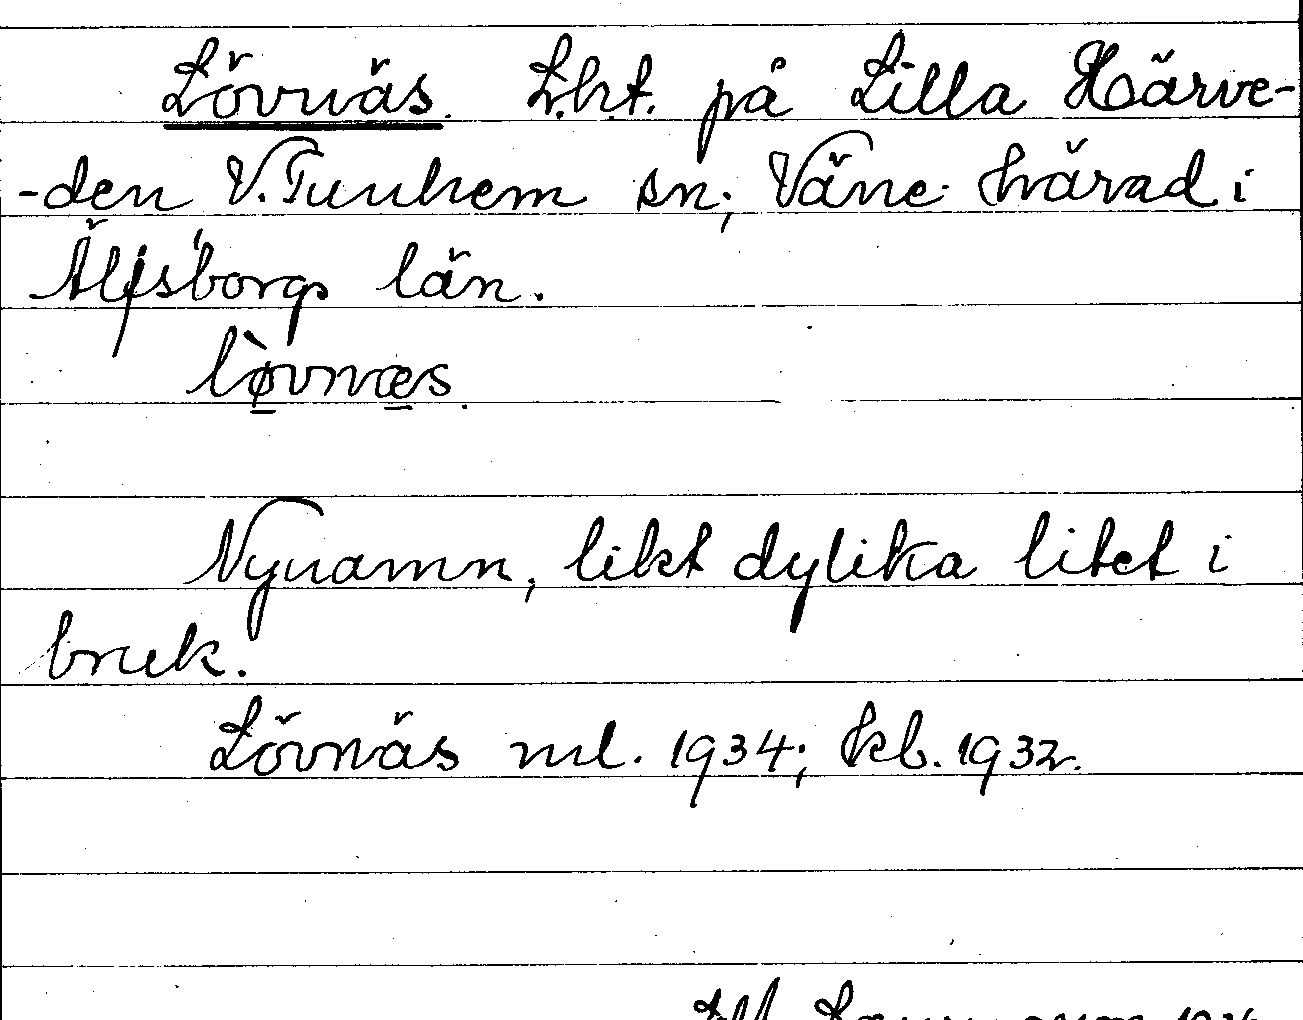 Lövnäs. Lht. på Lilla Härve-
-den V. Tunhem sn; Väne härad i
Älfsborgs län.
lø̀vnæs.
Nynamn, likt dylika litet i
bruk.
Lövnäs ml. 1934; kb. 1932.